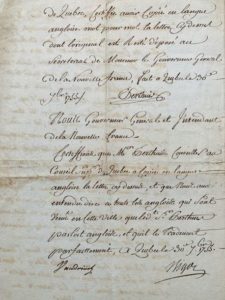 de Quebec, Certifie avoir Copié en langue
angloise mot pour mot la lettre cy dessus
dont l'original est Resté deposé au
Secretariat de Monsieur le Gouverneur General
de la Nouvelle france, fait a Quebec le 30e
7bre 1755.
Perthuis
Nous Gouverneur General et Intendant
de la Nouvelle france
Certiffions que Mr Perthuis Conseiller au
Conseil de Quebec a Copié en langue
angloise la lettre cy dessus, et que Nous
entendu dire en tous les anglois qui sont
Venu en cette Ville que led. S. Perthuis
parlait anglois, et qu'il le Traduisait
parfaitement, a Quebec le 30e 7bre 1755.
Vaudreuil Bigot